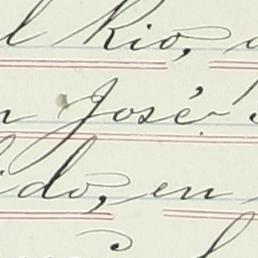 l Rio,
n José
ido, en